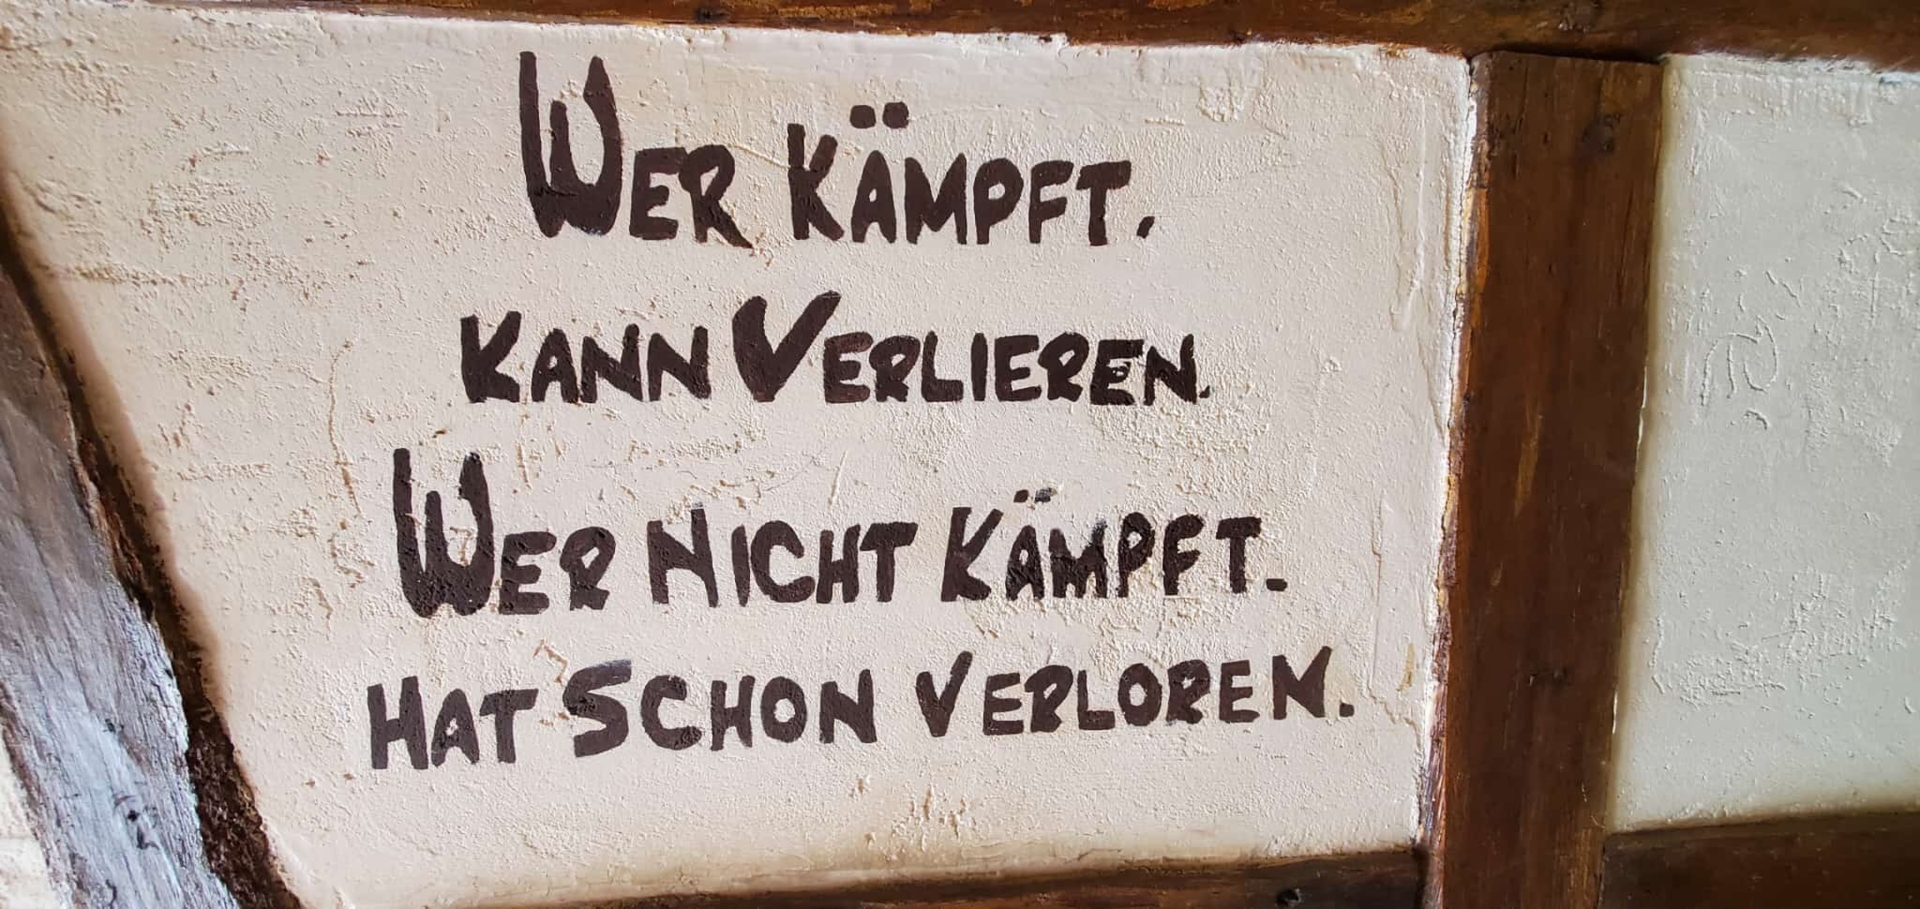 WER KÄMPFT.
KANN VERLIEREN.
WER NICHT KÄMPFT.
HAT SCHON VERLOREN.